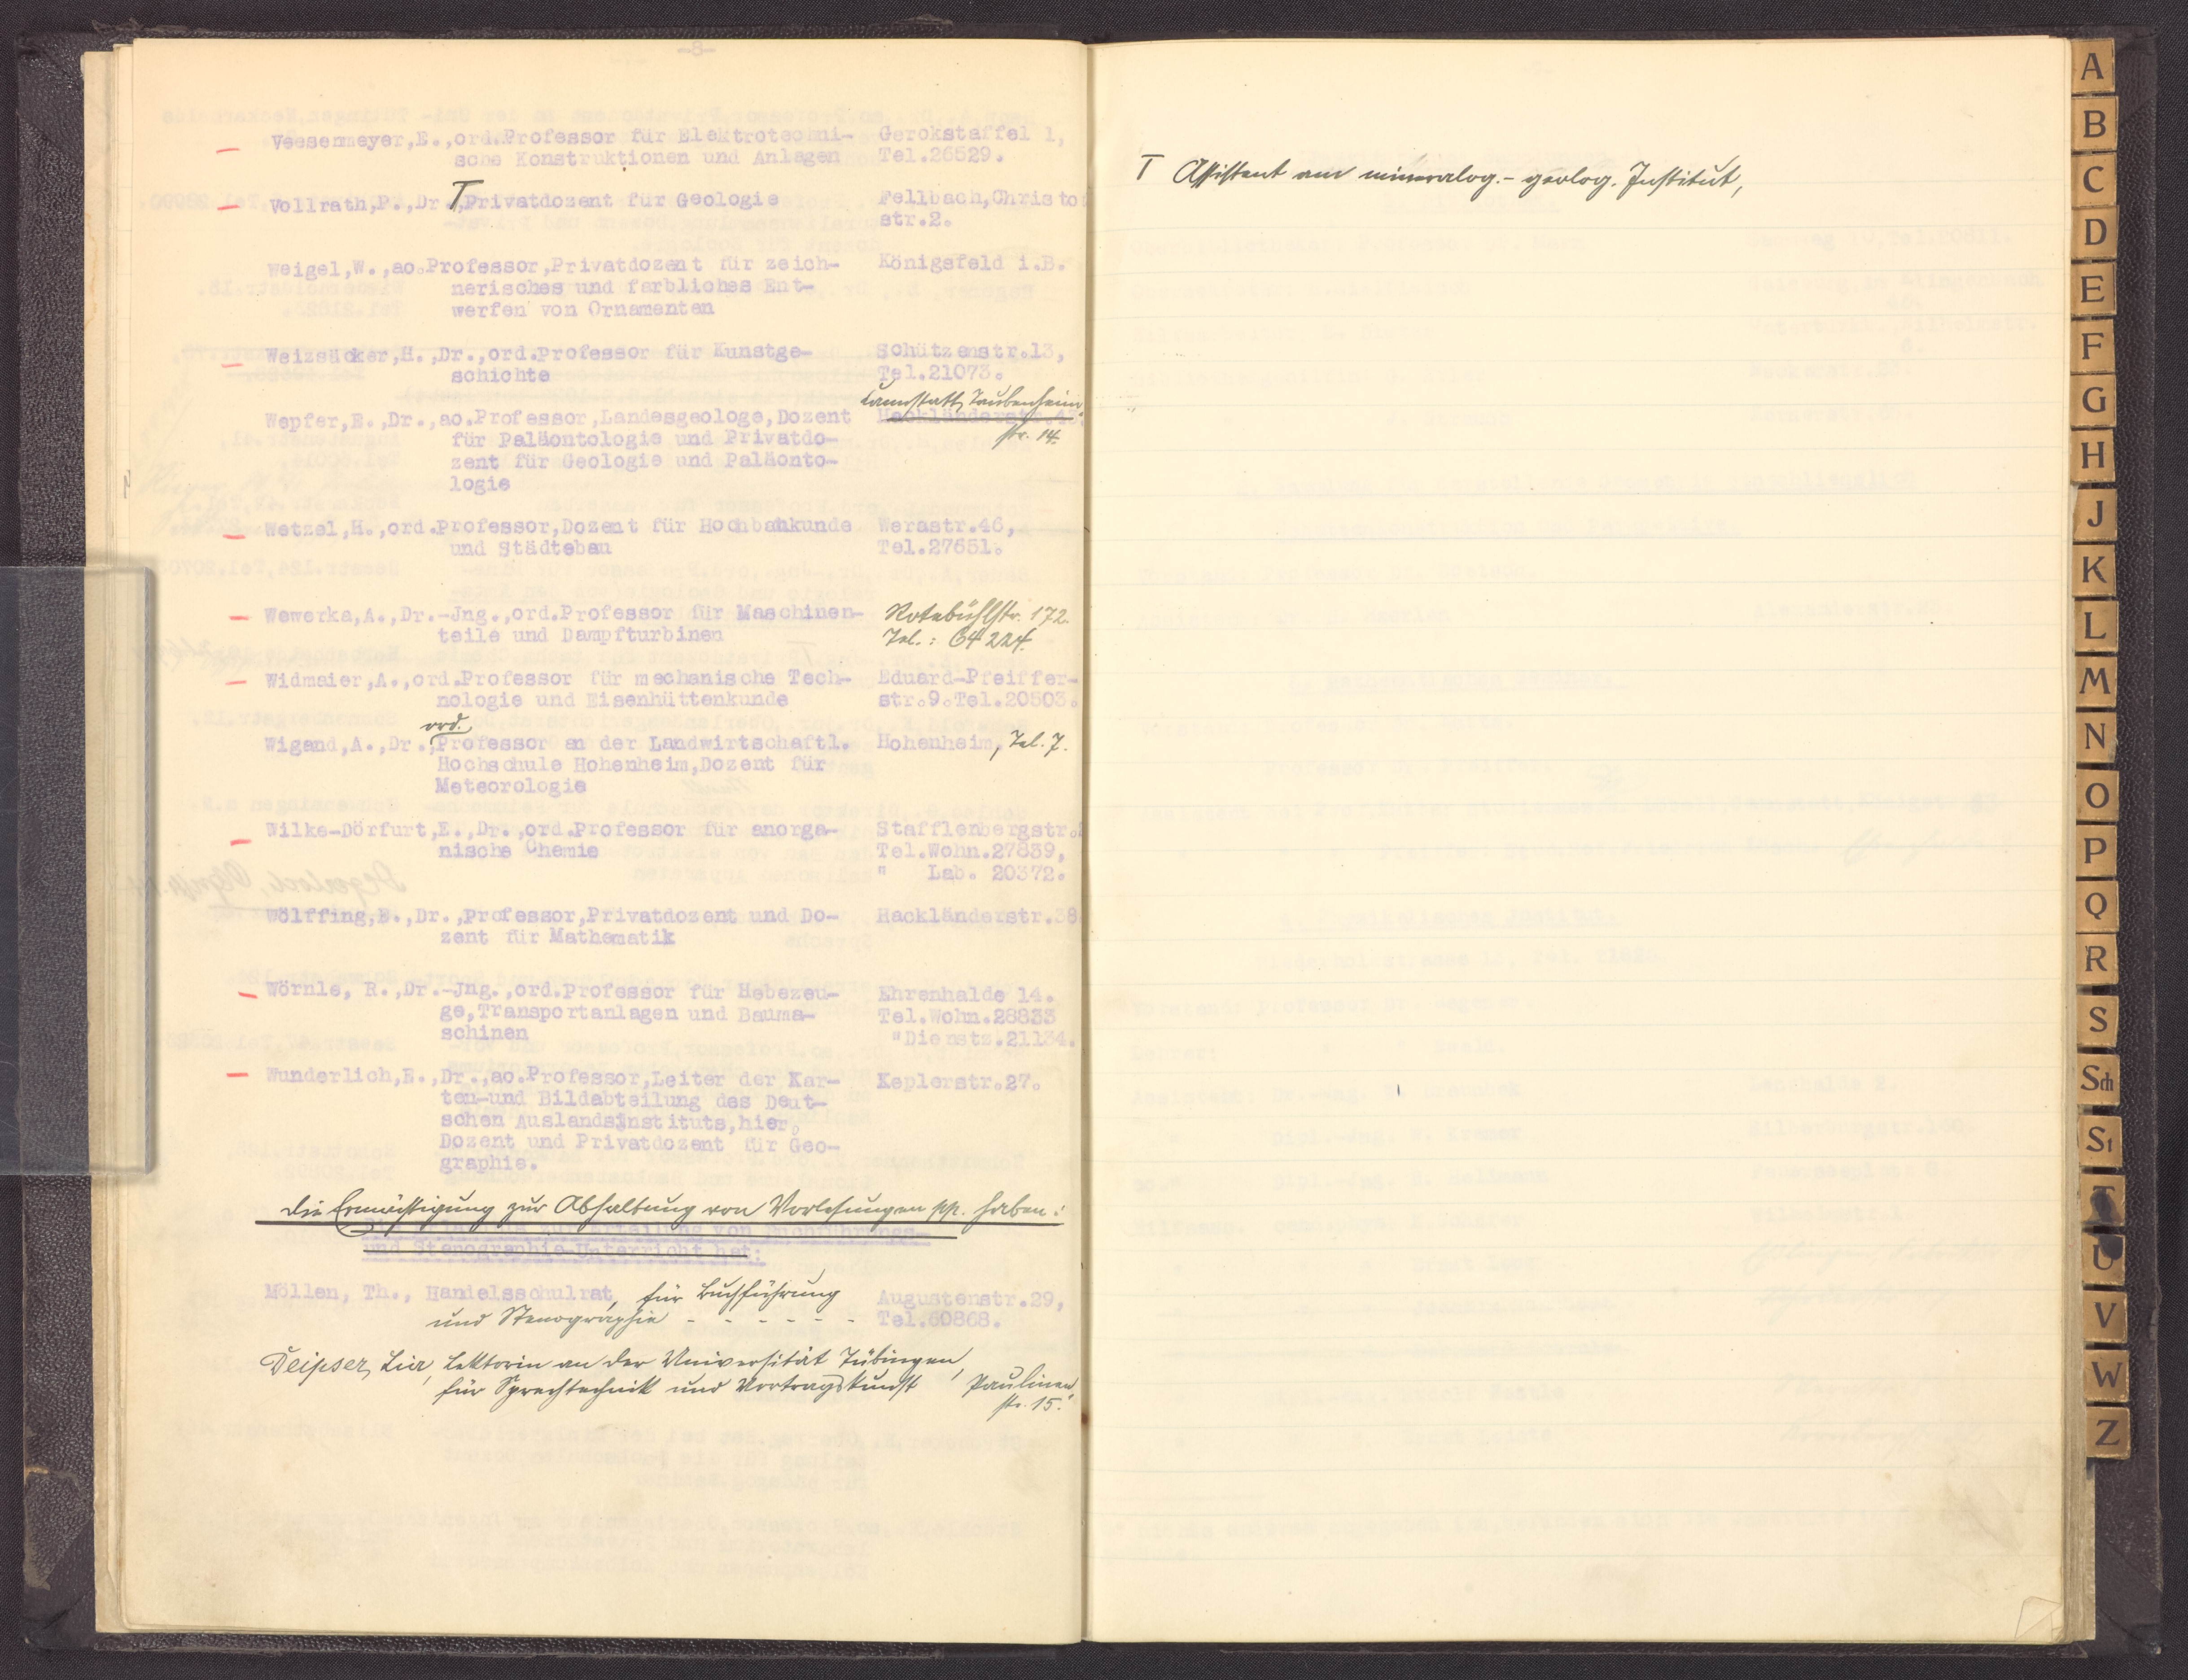 -8-
Veesenmeyer,E.,ord.Professor für Elektrotechni- Gerokstaffel 1,
sche Konstruktionen und Anlagen Tel.26529.
Vollrath,P.,Dr.,Privatdozent für Geologie Fellbach,Christo
str.2.
Weigel,W.,ao.Professor,Privatdozent für zeich- Königsfeld i.B.
nerisches und farbliches Ent-
werfen von Ornamenten
Weizsäcker,H.,Dr.,ord.Professor für Kunstge- Schützenstr.13,
schichte Tel.21073.
Cannstatt, Taubenheim-
Wepfer,E.,Dr.,ao.Professor,Landesgeologe,Dozent Hackländerstr.43.
für Paläontologie und Privatdo- str. 14.
zent für Geologie und Paläonto-
logie
Wetzel,H.,ord.Professor,Dozent für Hochbahkunde Werastr.46,
und Städtebau Tel.27651.
Wewerka,A.,Dr.-Jng.,ord.Professor für Maschinen- Rotebühlstr. 172.
teile und Dampfturbinen Tel.: 64224.
Widmaier,A.,ord.Professor für mechanische Tech- Eduard-Pfeiffer-
nologie und Eisenhüttenkunde str.9.Tel.20503.
ord.
Wigand,A.,Dr.,Professor an der Landwirtschaftl. Hohenheim, Tel. 7.
Hochschule Hohenheim,Dozent für
Meteorologie
Wilke-Dörfurt,E.,Dr.,ord.Professor für anorga- Stafflenbergstr.
nische Chemie Tel.Wohn.27839,
" Lab. 20372.
Wölffing,E.,Dr.,Professor,Privatdozent und Do- Hackländerstr.38
zent für Mathematik
Wörnle, R.,Dr.-Jng.,ord.Professor für Hebezeu- Ehrenhalde 14.
ge,Transportanlagen und Bauma- Tel.Wohn.28833
schinen "Dienstz.21134.
Wunderlich,E.,Dr.,ao.Professor,Leiter der Kar- Keplerstr.27.
ten-und Bildabteilung des Deut-
schen Auslandsinstituts,hier.
Dozent und Privatdozent für Geo-
graphie.
Die Ermächtigung zur Abhaltung von Vorlesungen pp. haben:
zur Erteilung von Buchführungs-
und Stenographie-Unterricht hat:
Möllen, Th., Handelsschulrat, für Buchführung Augustenstr.29,
und Stenographie - - - - - - Tel.60868.
Deipser, Lia, Lektorin an der Universität Tübingen,
für Sprechtechnik und Vortragskunst Paulinen-
str. 15.
T Assistent am mineralog.- geolog. Institut,
A
B
C
D
E
F
G
H
J
K
L
M
N
O
P
Q
R
S
Sch
St
T
U
V
W
Z